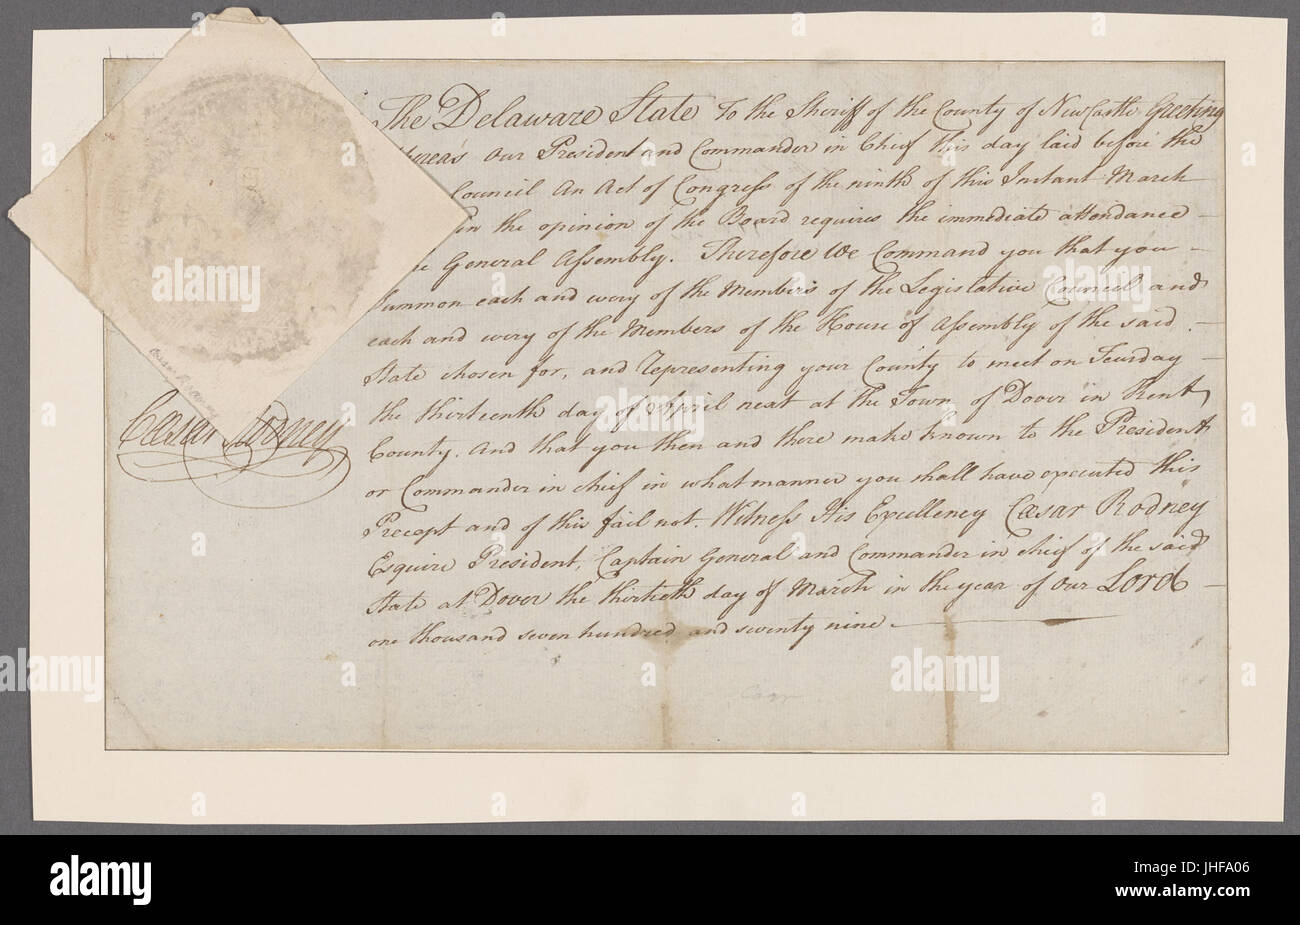 The Delaware State To the Sheriff of the County of NewCastle Greeting
Whereas Our President and Commander in Chief this day laid before the
Council An Act of Congress of the ninth of this Instant March
in the opinion of the Board requires the immediate attendance –
General Assembly. Therefore We Command you that you –
Summon each and every of the Members of the Legislative Council and
each and every of the Members of the House of Assembly of the said –
State chosen for, and representing your County to meet on Teusday –
the thirteenth day of April next at the Town of Dover in Kent
County. And that you then and there make known to the President
or Commander in chief in what manner you shall have executed this
Precept and of this fail not. Witness His Excellency Cæsar Rodney
Esquire President, Captain General and Commander in chief of the said
State at Dover the thirtieth day of March in the year of our Lord –
one thousand seven hundred and seventy nine
Cæsar Rodney
alamy stock photo
alamy
JHFA06
www.alamy.com